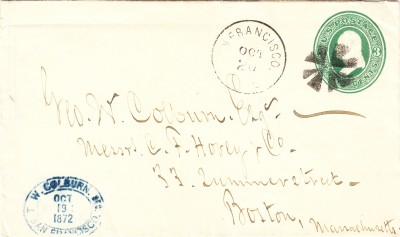 N FRANCISCO.
OCT
20
U.S. POSTAGE
CENTS
Geo. W. Colburn. Esq.
Messrs. C. F. Hovey & Co.
33. Summer street-
Boston,
Massachusetts.
T. W. COLBURN.
OCT
19
1872
SAN FRANCISCO.